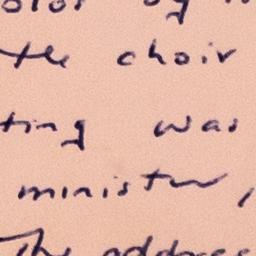 the choir
ting was
minister,
The address